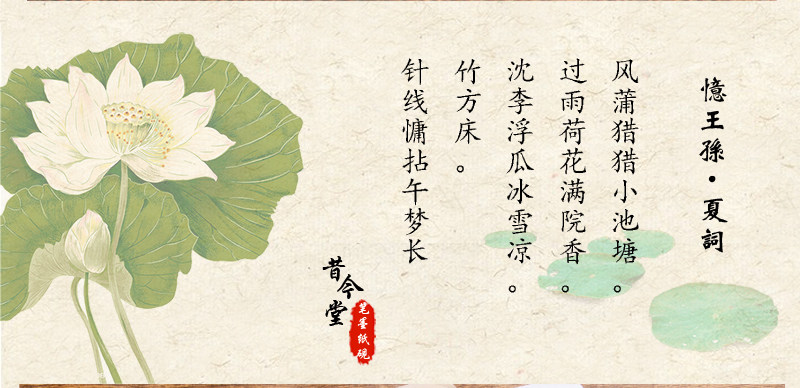 憶王孫·夏詞
风蒲猎猎小池塘。
过雨荷花满院香。
沈李浮瓜冰雪凉。
竹方床。
针线慵拈午梦长
昔今堂
笔墨纸砚